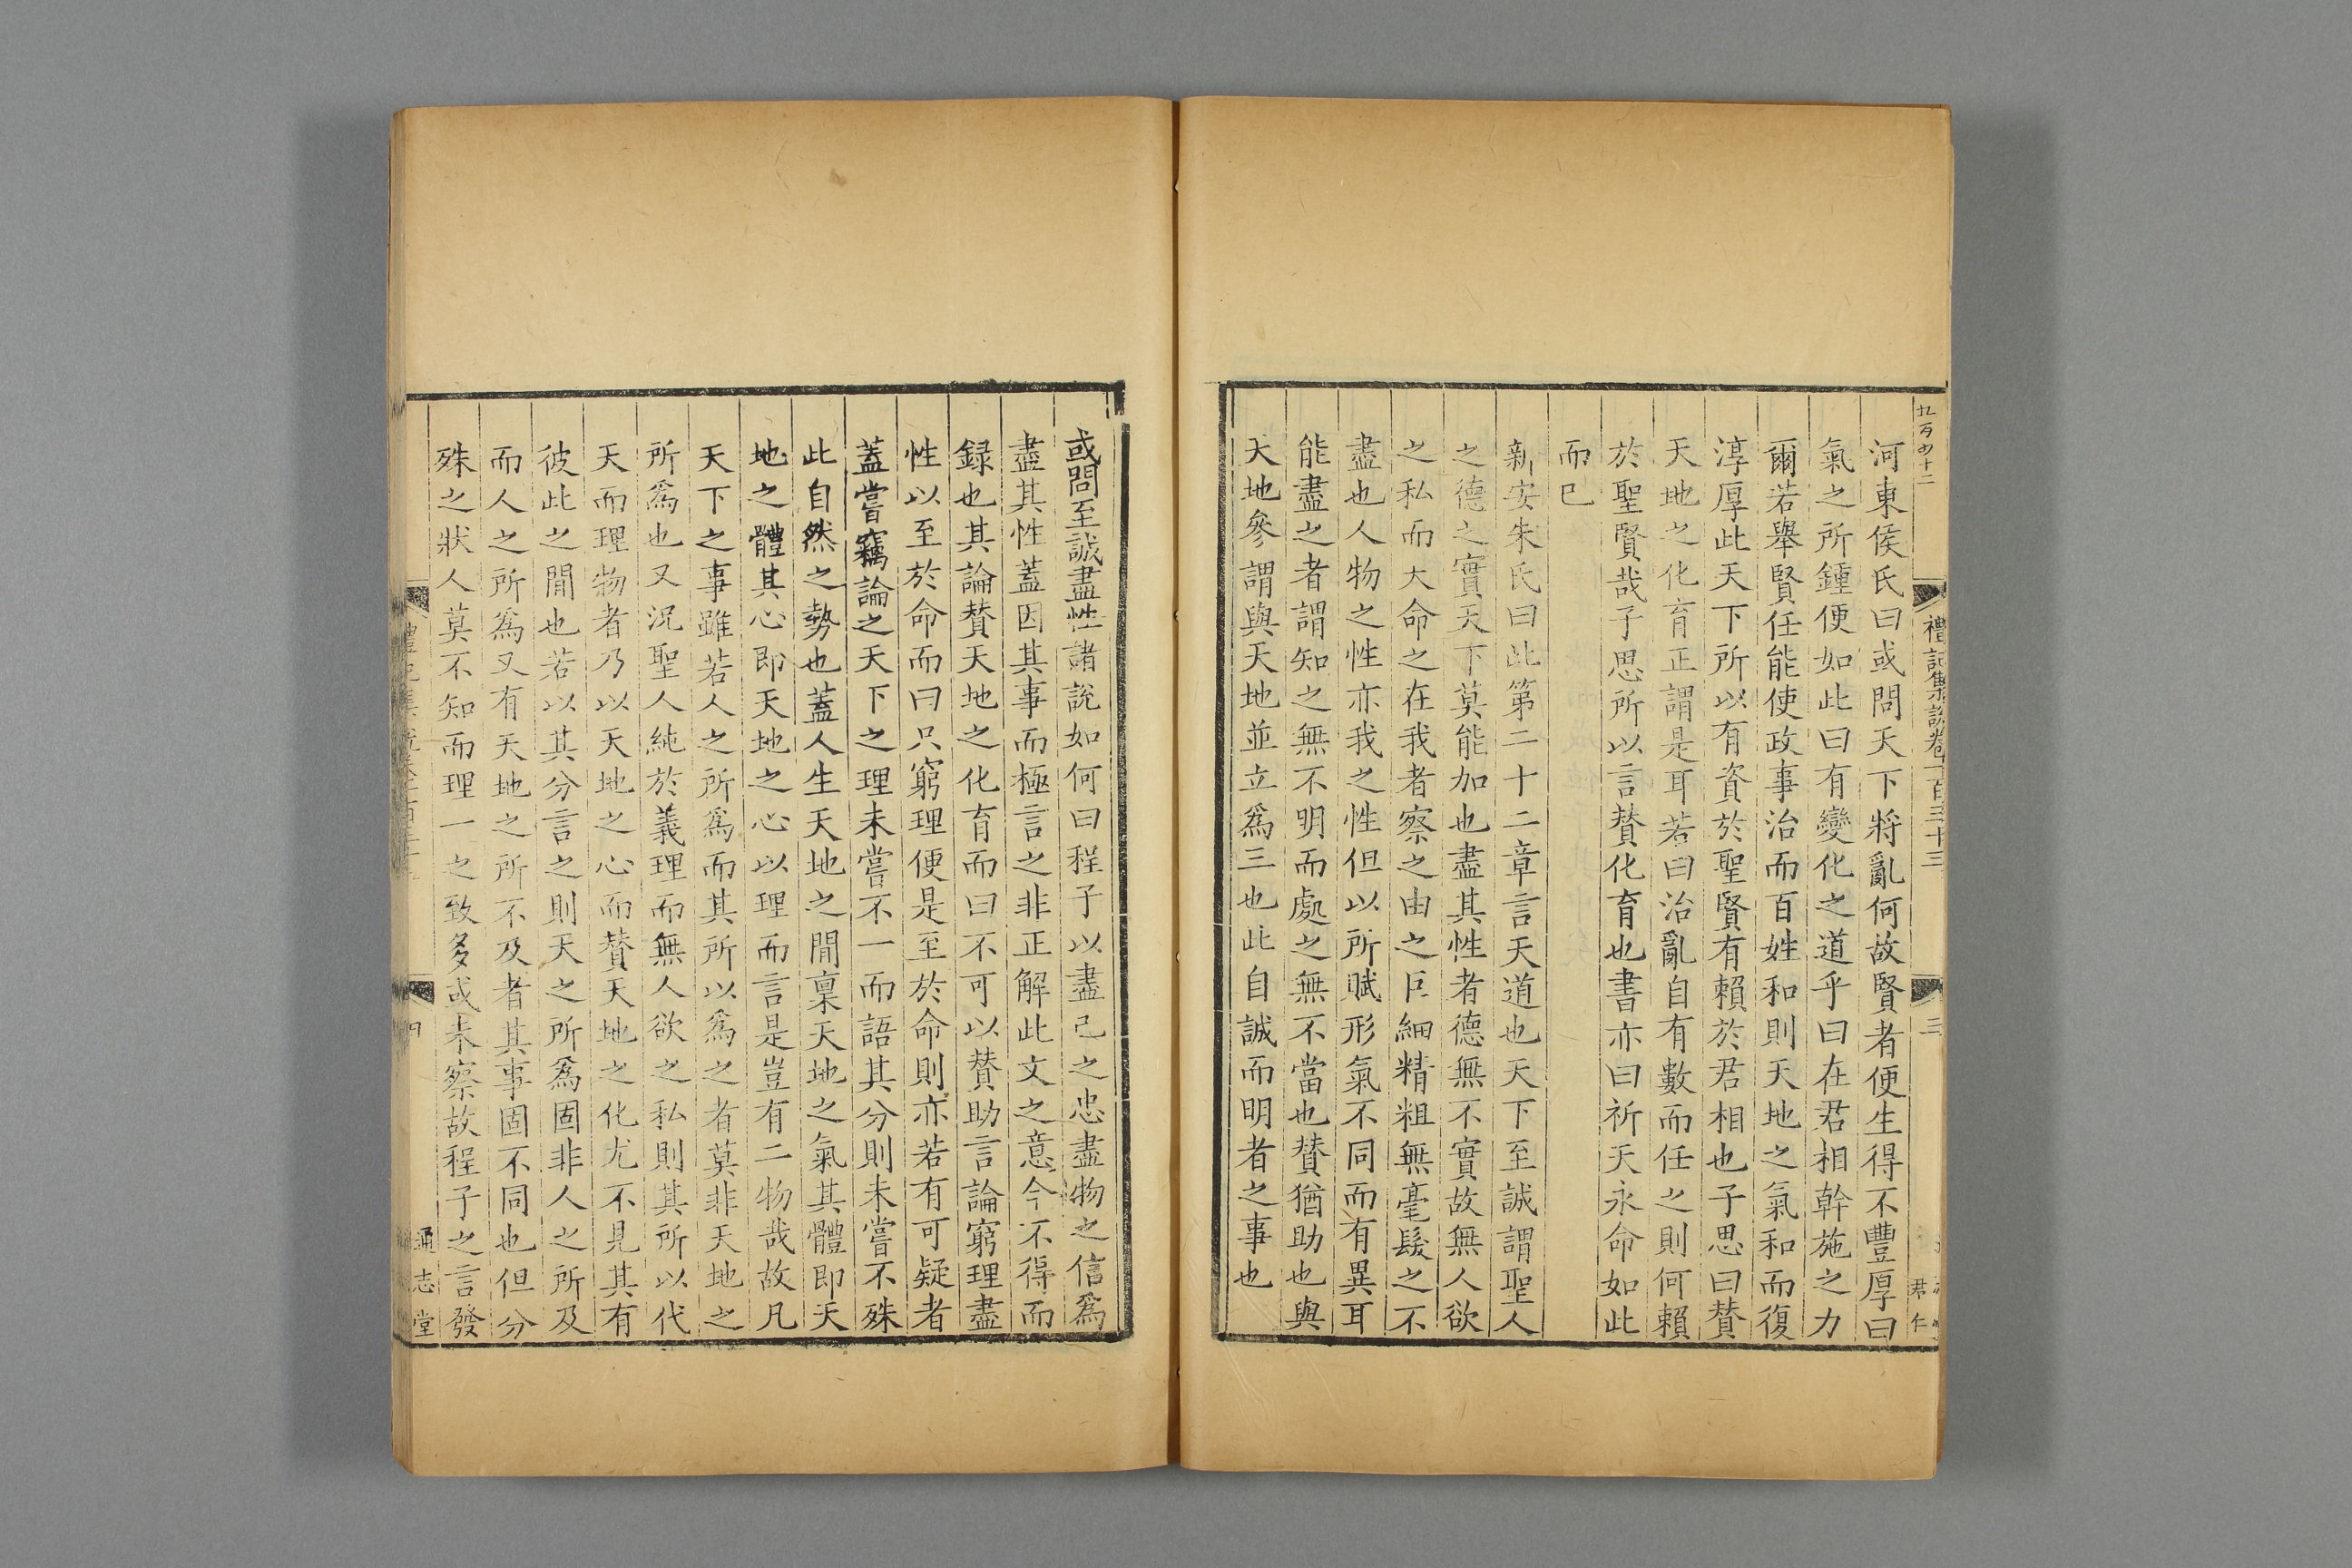 禮記集說卷一百三十三
三
君仁
河東侯氏曰或問天下將亂何故賢者便生得不豐厚曰
氣之所鍾便如此曰有變化之道乎曰在君相幹施之力
爾若舉賢任能使政事治而百姓和則天地之氣和而復
淳厚此天下所以有資於聖賢有賴於君相也子思曰贊
天地之化育正謂是耳若曰治亂自有數而任之則何賴
於聖賢哉子思所以言贊化育也書亦曰祈天永命如此
而已
新安朱氏曰此第二十二章言天道也天下至誠謂聖人
之德之實天下莫能加也盡其性者德無不實故無人欲
之私而大命之在我者察之由之巨細精粗無毫髮之不
盡也人物之性亦我之性但以所賦形氣不同而有異耳
能盡之者謂知之無不明而處之無不當也贊猶助也與
天地參謂與天地並立爲三也此自誠而明者之事也
或問至誠盡性諸說如何曰程子以盡己之忠盡物之信爲
盡其性蓋因其事而極言之非正解此文之意今不得而
録也其論贊天地之化育而曰不可以贊助言論窮理盡
性以至於命而曰只窮理便是至於命則亦若有可疑者
蓋嘗竊論之天下之理未嘗不一而語其分則未嘗不殊
此自然之勢也蓋人生天地之間稟天地之氣其體即天
地之體其心即天地之心以理而言是豈有二物哉故凡
天下之事雖若人之所爲而其所以爲之者莫非天地之
所爲也又況聖人純於義理而無人欲之私則其所以代
天而理物者乃以天地之心而贊天地之化尤不見其有
彼此之間也若以其分言之則天之所爲固非人之所及
而人之所爲又有天地之所不及者其事固不同也但分
殊之狀人莫不知而理一之致多或未察故程子之言發
通志堂